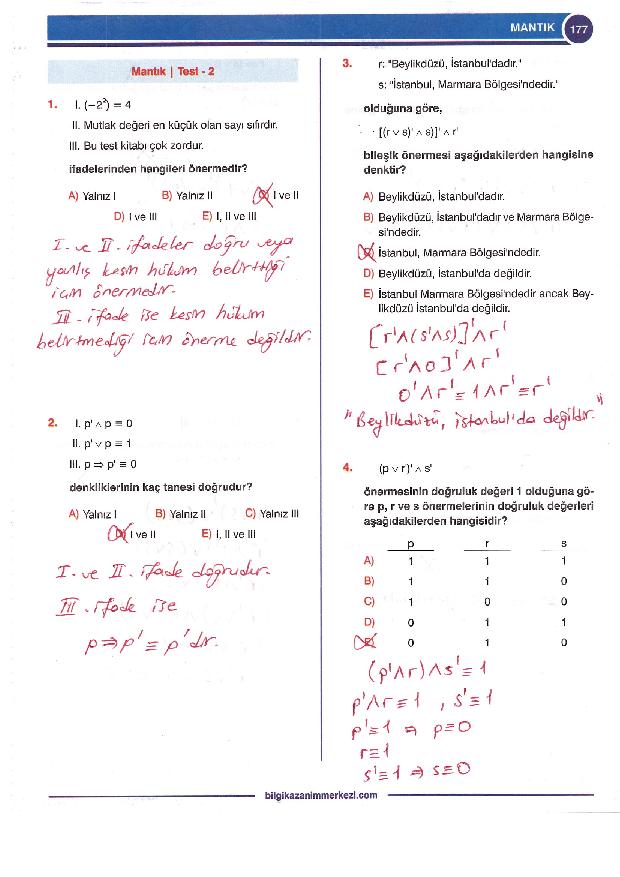 MANTIK 177
Mantık | Test - 2
1. I. (−2²) = 4
II. Mutlak değeri en küçük olan sayı sıfırdır.
III. Bu test kitabı çok zordur.
ifadelerinden hangileri önermedir?
A) Yalnız I B) Yalnız II C) I ve II
D) I ve III E) I, II ve III
I. ve II. ifadeler doğru veya
yanlış kesin hüküm belirttiği
için önermedir.
III. ifade ise kesin hüküm
belirtmediği için önerme değildir.
2. I. p' ∧ p ≡ 0
II. p' ∨ p ≡ 1
III. p ⇒ p' ≡ 0
denkliklerinin kaç tanesi doğrudur?
A) Yalnız I B) Yalnız II C) Yalnız III
D) I ve II E) I, II ve III
I. ve II. ifade doğrudur.
III. ifade ise
p⇒p' ≡ p' dır.
3. r: "Beylikdüzü, İstanbul'dadır."
s: "İstanbul, Marmara Bölgesi'ndedir."
olduğuna göre,
[(r ∨ s)' ∧ s)]' ∧ r'
bileşik önermesi aşağıdakilerden hangisine
denktir?
A) Beylikdüzü, İstanbul'dadır.
B) Beylikdüzü, İstanbul'dadır ve Marmara Bölge-
si'ndedir.
C) İstanbul, Marmara Bölgesi'ndedir.
D) Beylikdüzü, İstanbul'da değildir.
E) İstanbul Marmara Bölgesi'ndedir ancak Bey-
likdüzü İstanbul'da değildir.
[r'∧(s'∧s)]'∧r'
[r'∧0]'∧r'
0'∧r'≡1∧r'≡r'
"Beylikdüzü, istanbul'da değildir."
4. (p ∨ r)' ∧ s'
önermesinin doğruluk değeri 1 olduğuna gö-
re p, r ve s önermelerinin doğruluk değerleri
aşağıdakilerden hangisidir?
p r s
A) 1 1 1
B) 1 1 0
C) 1 0 0
D) 0 1 1
E) 0 1 0
(p'∧r)∧s'≡1
p'∧r≡1 , s'≡1
p'≡1 ⇒ p≡0
r≡1
s'≡1 ⇒ s≡0
bilgikazanimmerkezi.com